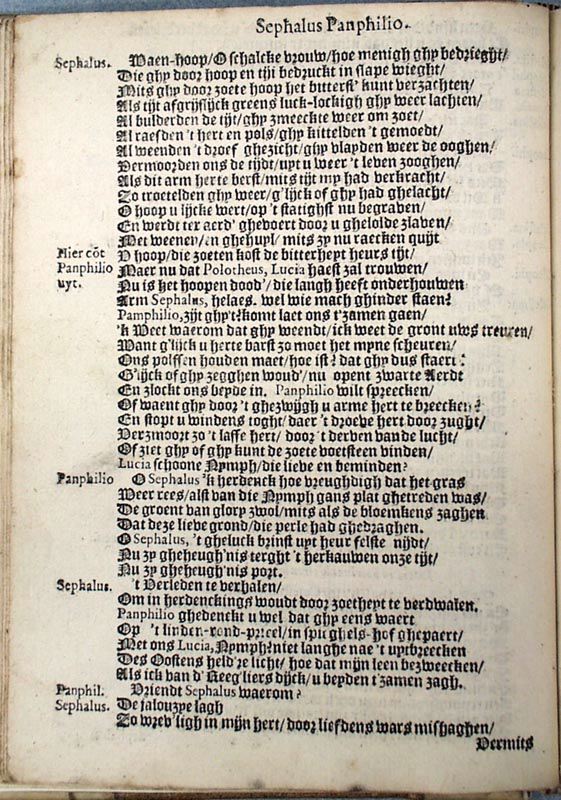 Sephalus Panphilio.
Sephalus. Waen-hoop/ O schalcke vrouw/ hoe menigh ghy bedrieght/
Die ghy door hoop en tijt bedruckt in slape wieght/
Mits ghy door zoete hoop het bitterst' kunt verzachten/
Als tijt afgrijslijck greens luck-lockigh ghy weer lachten/
Al bulderden de tijt/ ghy zmeeckte weer om zoet/
Al raesden 't hert en pols/ ghy kittelden 't gemoedt/
Al weenden 't droef ghezicht/ ghy vlayden weer de ooghen/
Vermoorden ons de tijdt/ upt u weer 't leven zooghen/
Als dit arm herte berst/ mits tijt my had verkracht/
Zo troetelden ghy weer/ g'lijck of ghy had ghelacht/
O hoop u lijcke wert/ op 't statighst nu begraven/
En werdt ter aerd' ghevoert door u ghelofde zlaven/
Met weenen/ en ghehuyl/ mits zy nu raecken quijt
Hier cōt V hoop/ die zoeten kost de bitterheyt heurs tijt/
Panphilio Maer nu dat Polotheus, Lucia haest zal trouwen/
uyt. Nu is het hoopen doodt/ die langh heeft onderhouwen
Arm Sephalus, helaes. wel wie mach ghinder staen?
Pamphilio, zijt ghy 't? komt laet ons t'zamen gaen/
'k Weet waerom dat ghy weendt/ ick weet de gront uws treuren/
Want g'lijck u herte barst zo moet het myne scheuren/
Ons polssen houden maet/ hoe ist? dat ghy dus staert?
G'lijck of ghy zegghen woud'/ nu opent zwarte Aerdt
En zlockt ons beyde in. Panphilio wilt spreecken/
Of waent ghy door 't ghezwijgh u arme hert te breecken?
En stopt u windens toght/ daer 't droeve hert door zught/
Verzmoort zo 't laffe hert/ door 't derven van de lucht/
Of ziet ghy of ghy kunt de zoete voetsteen vinden/
Lucia schoone Nymph/ die lieve en beminden?
Panphilio O Sephalus 'k herdenck hoe vreughdigh dat het gras
Weer rees/ alst van die Nymph gans plat ghetreden was/
De groent van glory zwol/ mits als de bloemkens zaghen
Dat deze lieve grond/ die perle had ghedraghen.
O Sephalus, 't gheluck brinst upt heur felste nijdt/
Nu zy gheheugh'nis terght 't herkauwen onze tijt/
Nu zy gheheugh'nis port.
Sephalus. 't Verleden te verhalen/
Om in herdenckings woudt door zoetheyt te verdwalen.
Panphilio ghedenckt u wel dat ghy eens waert
Op 't linden-rond-prieel/ in spieghels-hof ghepaert/
Met ons Lucia, Nymph? niet langhe nae 't uytbreecken
Des Oostens held're licht/ hoe dat mijn leen bezweecken/
Als ick van d' Reeg'liers dijck/ u beyden t'zamen zagh.
Panphil. Vriendt Sephalus waerom?
Sephalus. De jalouzye lagh
Zo wrev'ligh in mijn hert/ door liefdens wars mishaghen/
Vermits